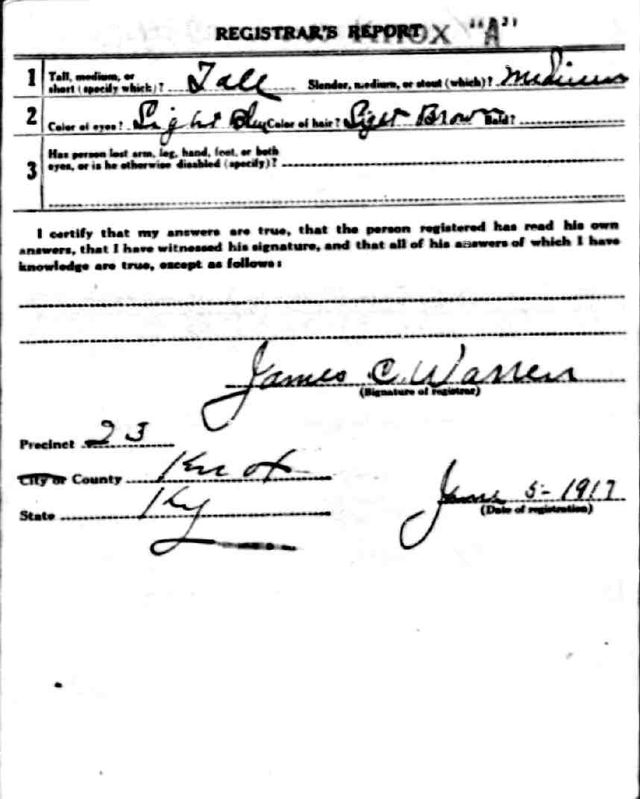 REGISTRAR'S REPORT
KNOX "A"
1 Tall, medium, or short (specify which)? Tall Slender, medium, or stout (which)? Medium
2 Color of eyes? Light Blue Color of hair? Light Brown Bald?
3 Has person lost arm, leg, hand, foot, or both
eyes, or is he otherwise disabled (specify)?
I certify that my answers are true, that the person registered has read his own
answers, that I have witnessed his signature, and that all of his answers of which I have
knowledge are true, except as follows:
James C. Warren
(Signature of registrar)
Precinct 23
City or County Knox
State Ky
June 5-1917
(Date of registration)